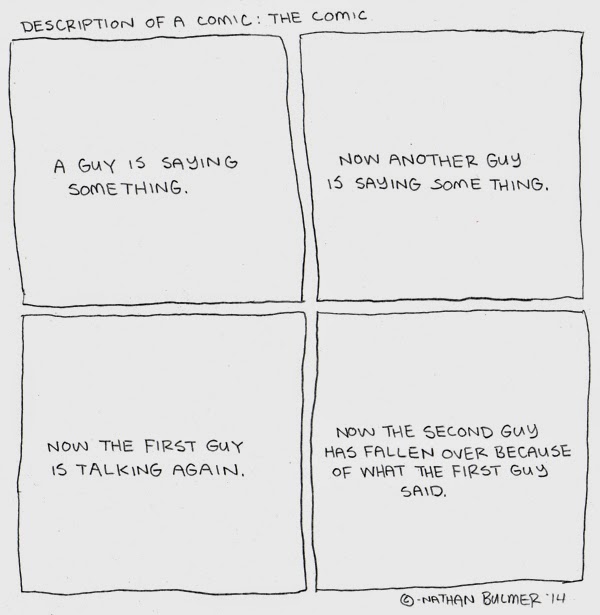 DESCRIPTION OF A COMIC: THE COMIC
A GUY IS SAYING
SOMETHING.
NOW ANOTHER GUY
IS SAYING SOME THING.
NOW THE FIRST GUY
IS TALKING AGAIN.
NOW THE SECOND GUY
HAS FALLEN OVER BECAUSE
OF WHAT THE FIRST GUY
SAID.
©-NATHAN BULMER '14